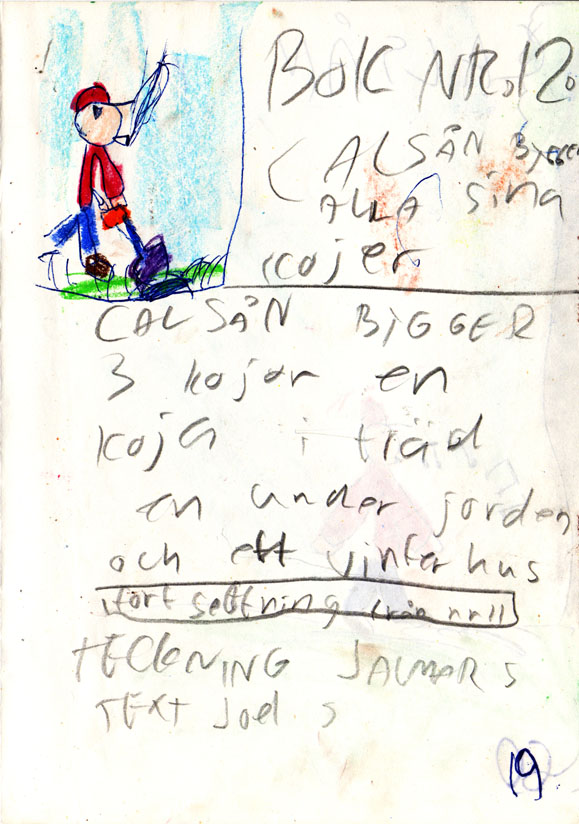 BOK NR.12.
CALSÅN Bygger
ALLA sina
kojer
CALSÅN BIGGER
3 kojor en
koja i träd
en under jorden
och ett vinterhus
fortsettning från nr 11
TECKNING JALMAR S
TEXT JOEL S
19